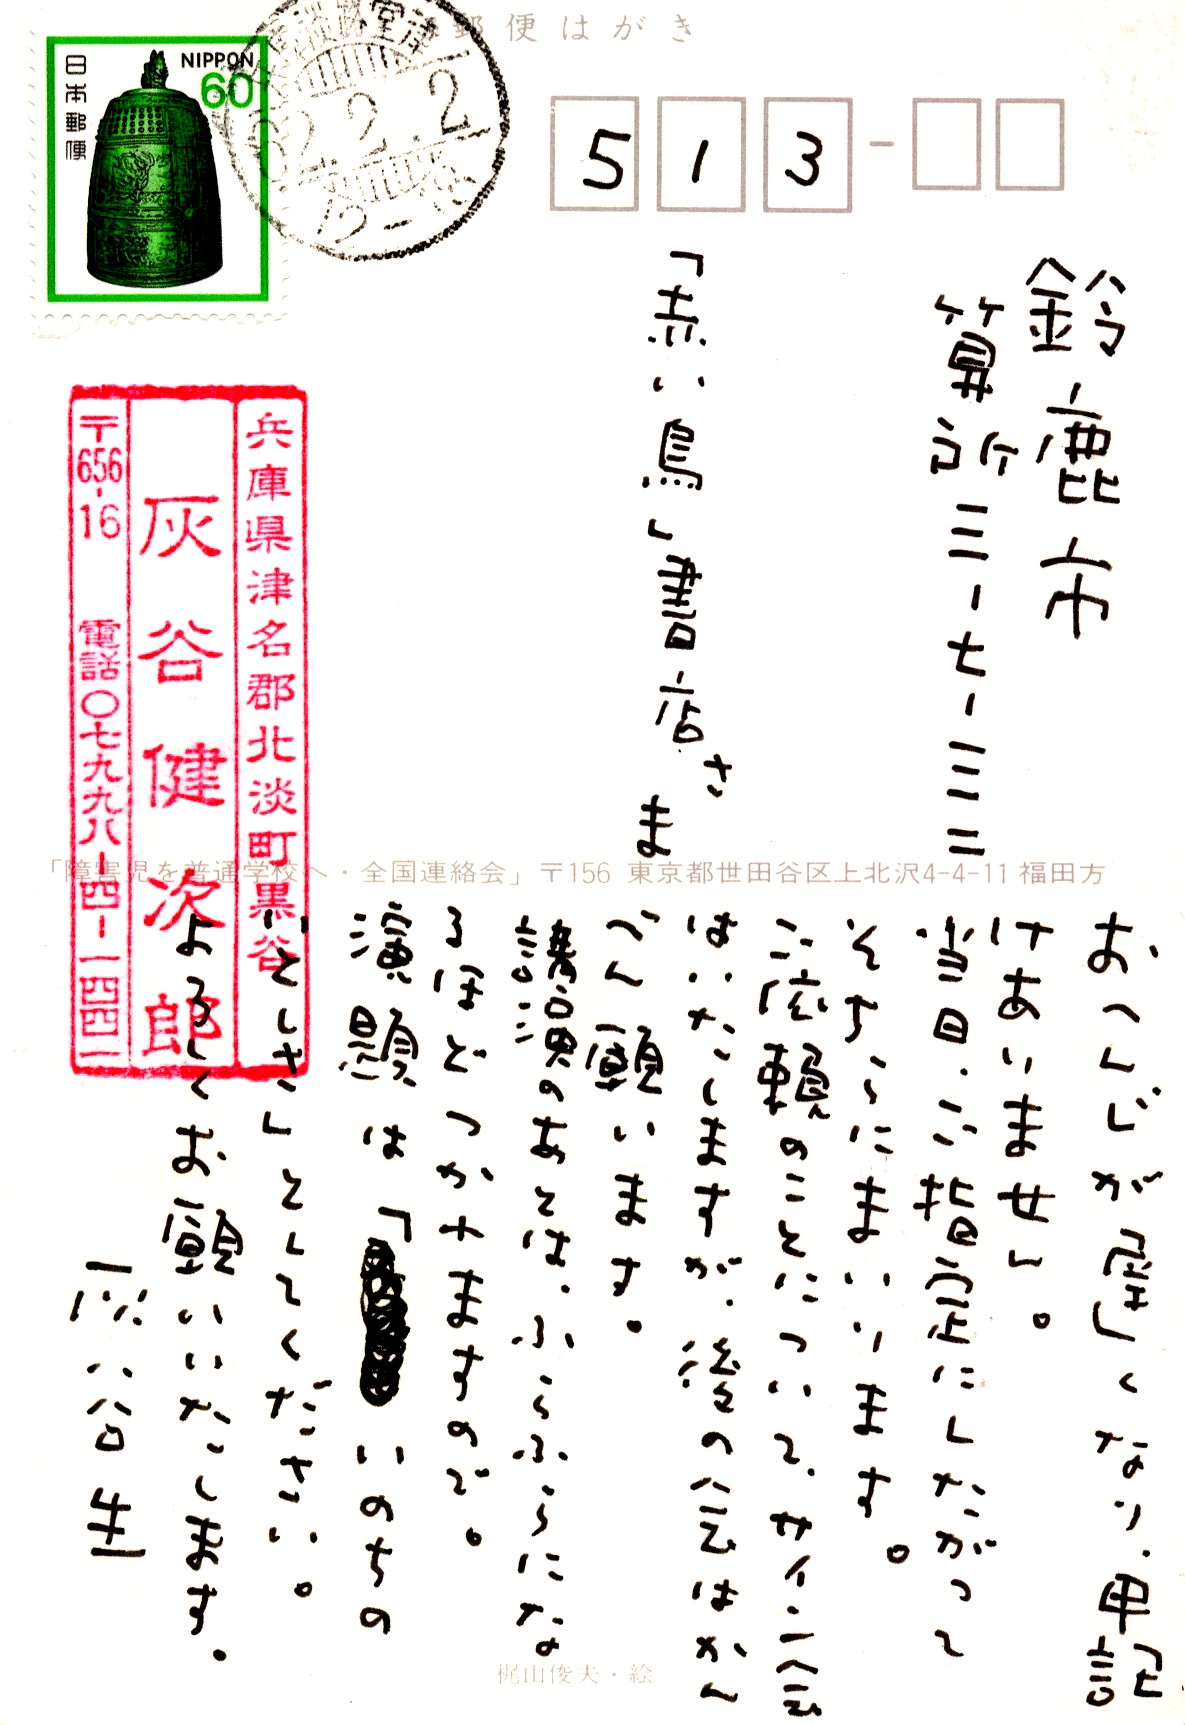 郵便はがき
日本郵便
NIPPON
60
2.2
513
鈴鹿市
算所三ー七ー三二
「赤い鳥」書店さま
兵庫県津名郡北淡町黒谷
灰谷健次郎
〒656-16 電話〇七九九八ー四ー一四四一
「障害児を普通学校へ・全国連絡会」〒156 東京都世田谷区上北沢4-4-11 福田方
おへんじが
くなり、申
けありません。
当日、ご指定にしたがって
そちらにまいります。
ご依頼のことについて、サイン会
はいたしますが、後の会はかん
べん願います。
講演のあとは、ふらふらにな
るほどつかれますので。
演題は「いのちの
としさ」としてください。
よろしくお願いいたします。
灰谷生
梶山俊夫・絵